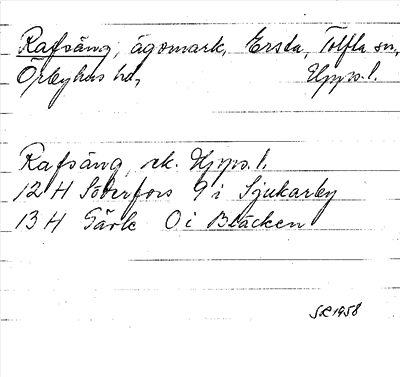 Rafsäng, ägomark, Ersta, Tolfta sn,
Örbyhus hd, Upps. l.
Rafsäng, ek. Upps. l.
12 H Söderfors 9 i Sjukarby
13 H Gävle 0 i Bläcken
SR 1958